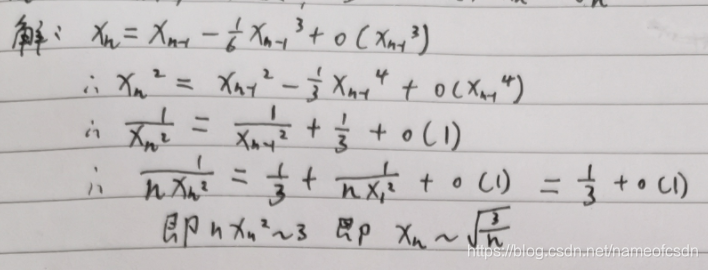 解: xₙ = xₙ₋₁ - 1/6 xₙ₋₁³ + o(xₙ₋₁³)
∴ xₙ² = xₙ₋₁² - 1/3 xₙ₋₁⁴ + o(xₙ₋₁⁴)
∴ 1/xₙ² = 1/xₙ₋₁² + 1/3 + o(1)
∴ 1/(n xₙ²) = 1/3 + 1/(n x₁²) + o(1) = 1/3 + o(1)
即 n xₙ² ~ 3 即 xₙ ~ √(3/n)
https://blog.csdn.net/nameofcsdn